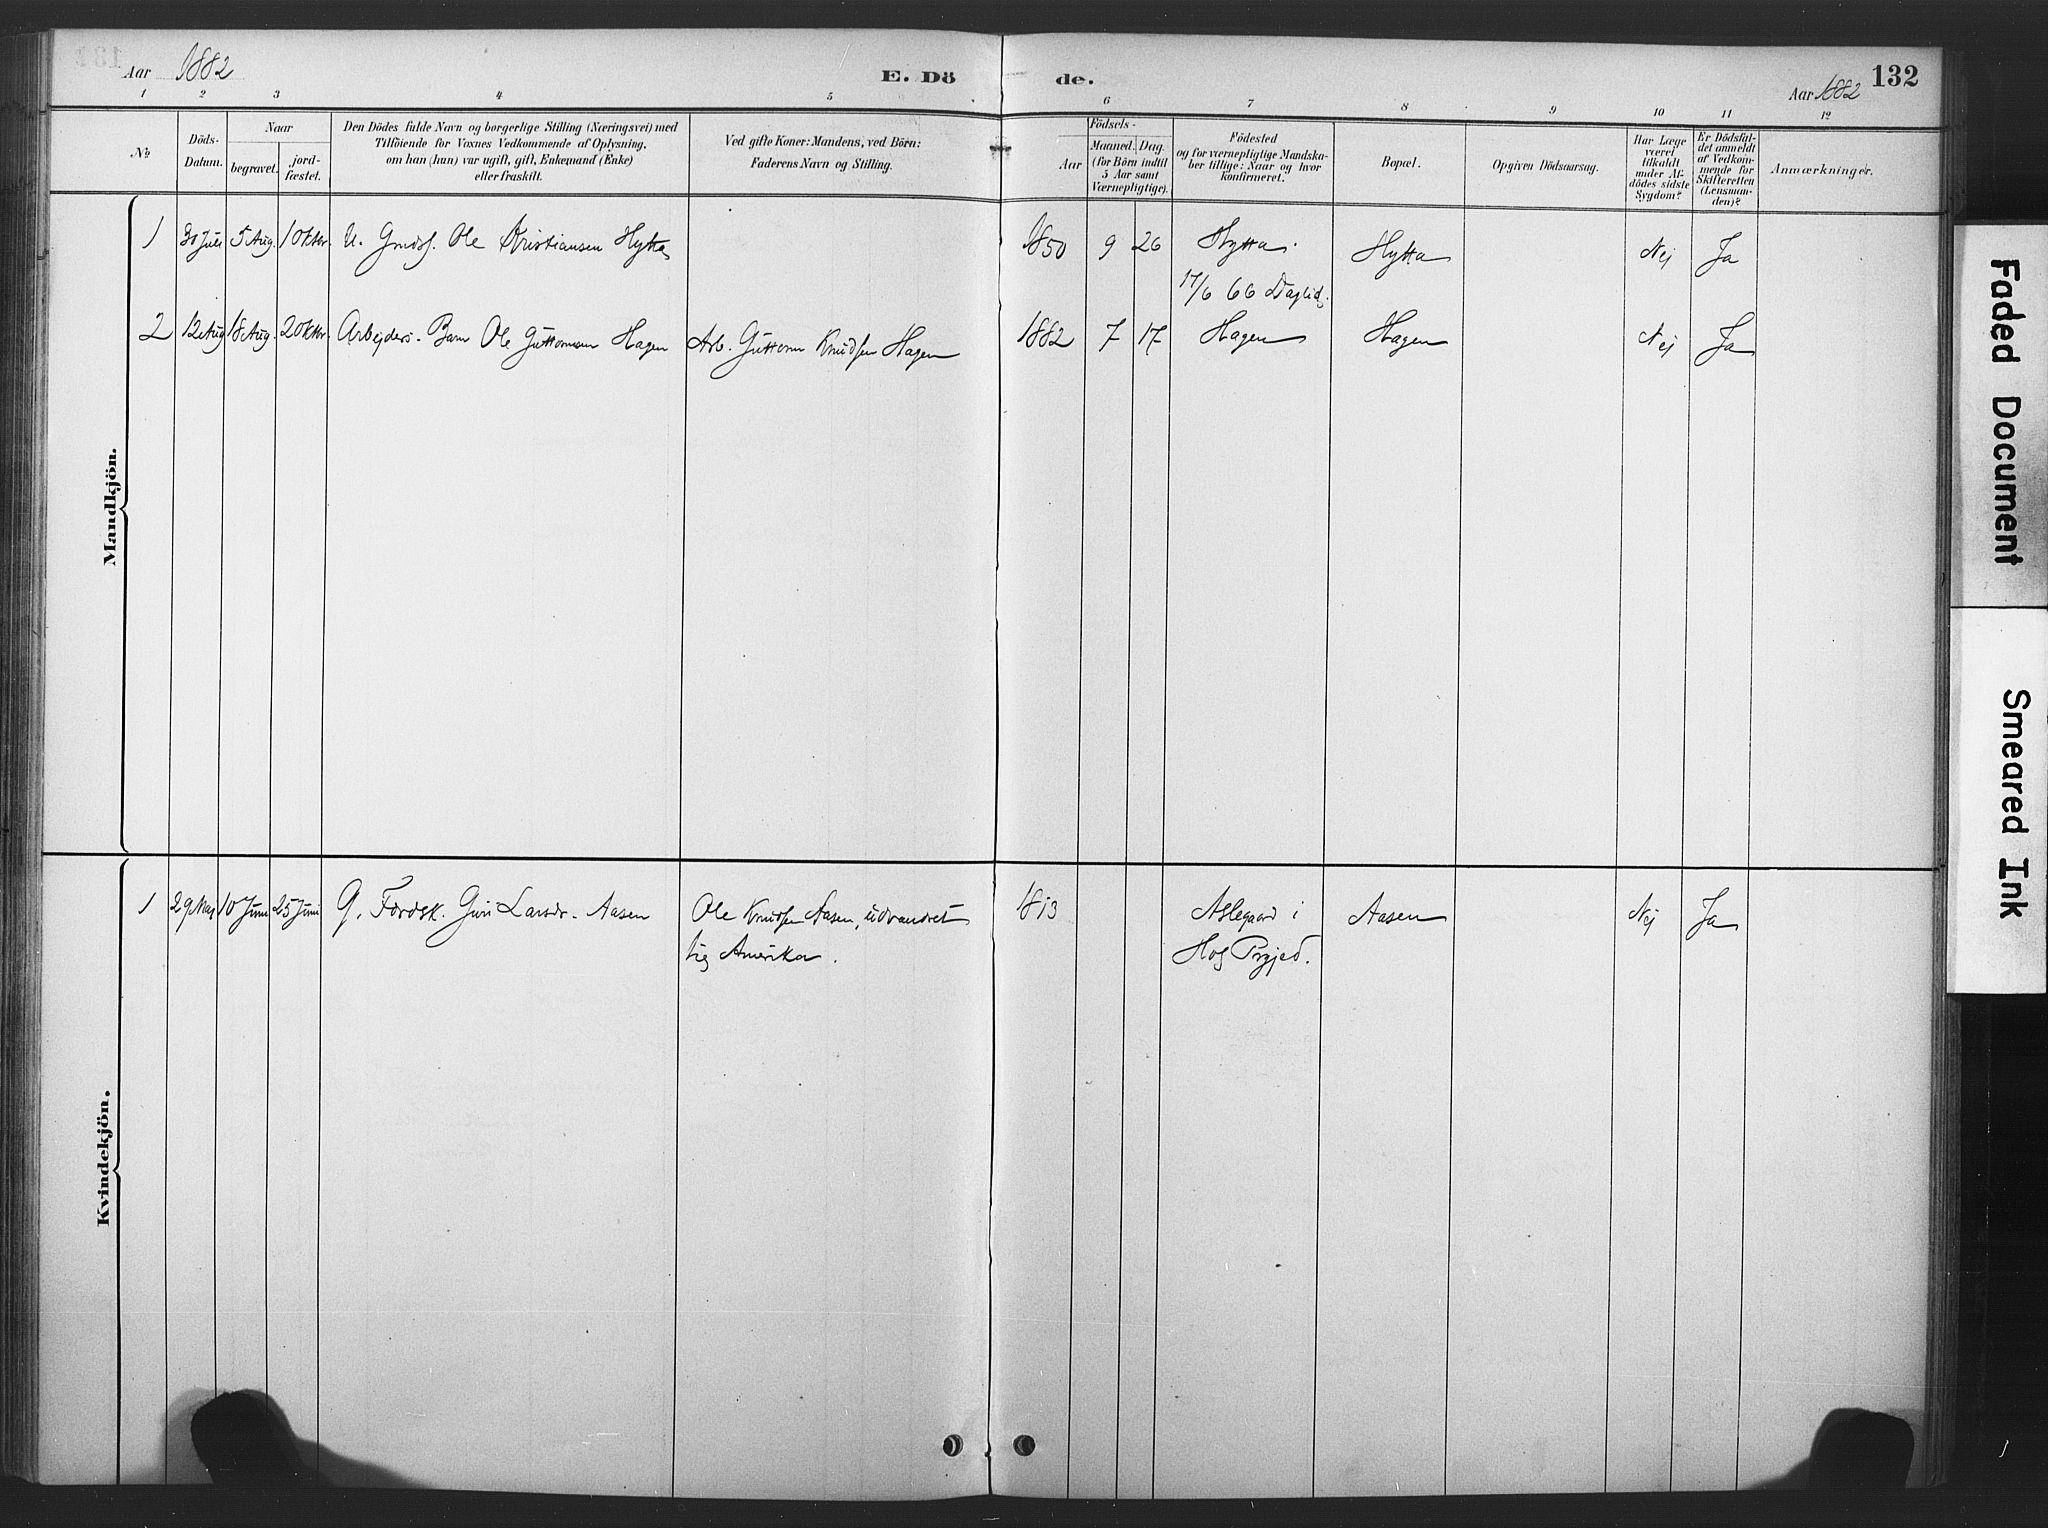 Aar 1882
E. Dö
de.
Aar 1882
132
1 2 3 4 5 6 7 8 9 10 11 12
No
Döds-
Datum.
Naar
begravet.
jord-
fæstet.
Den Dödes fulde Navn og borgerlige Stilling (Næringsvei) med
Tilföiende for Voxnes Vedkommende af Oplysning,
om han (hun) var ugift, gift, Enkemand (Enke)
eller fraskilt.
Ved gifte Koner: Mandens, ved Börn:
Faderens Navn og Stilling.
Födsels-
Aar
Maaned. Dag.
(for Börn indtil
5 Aar samt
Værnepligtige).
Födested
og for værnepligtige Mandska-
ber tillige: Naar og hvor
konfirmeret.
Bopæl.
Opgiven Dödsaarsag.
Har Læge
været
tilkaldt
under Af-
dödes sidste
Sygdom?
Er Dödsfal-
det anmeldt
af Vedkom-
mende for
Skifteretten
(Lensman-
den)?
Anmærkninger.
Mandkjön.
1 30 Juli 5 Aug. 1 Oktbr. U. Grndsf. Ole Kristiansen Hytta 1850 9 26 Hytta. Hytta Nej Ja
17/6 66
2 12 Aug 18 Aug. 2 Oktbr. Arbejders. Barn Ole Guttormsen Hagen Arb. Guttorm Knudsen Hagen 1882 7 17 Hagen Hagen Nej Ja
Kvindekjön.
1 29 Mai 10 Juni 25 Juni G. Fdrdsk. Guri Larsdr. Aasen Ole Knudsen Aasen, udvandret 1813 i Aasen Nej Ja
til Amerika. Prgjed.
Faded Document
Smeared Ink